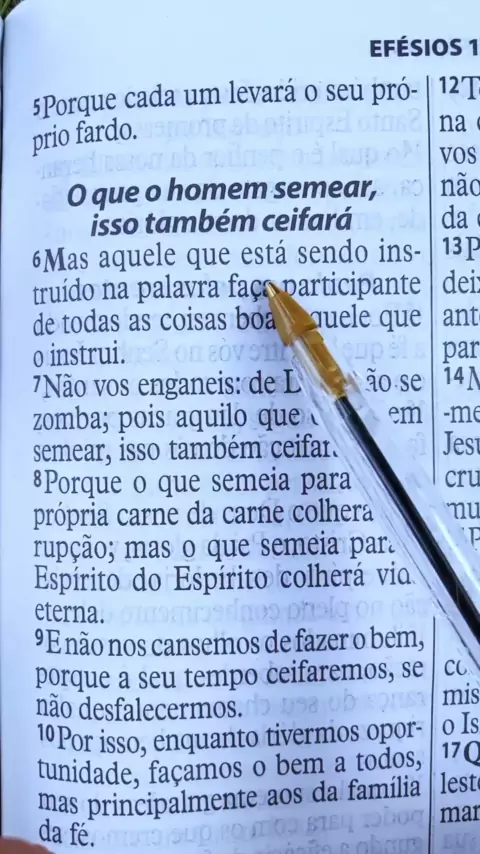 EFÉSIOS 1
5Porque cada um levará o seu pró-
prio fardo.
O que o homem semear,
isso também ceifará
6Mas aquele que está sendo ins-
truído na palavra faça participante
de todas as coisas boa quele que
o instrui.
7Não vos enganeis: de D ão se
zomba; pois aquilo que em
semear, isso também ceifar
8Porque o que semeia para
própria carne da carne colherá
rupção; mas o que semeia para
Espírito do Espírito colherá vida
eterna.
9E não nos cansemos de fazer o bem,
porque a seu tempo ceifaremos, se
não desfalecermos.
10Por isso, enquanto tivermos opor-
tunidade, façamos o bem a todos,
mas principalmente aos da família
da fé.
12T
na
vos
não
da
13P
deix
ant
par
14M
-me
Jesu
cru
mu
mis
o Is
17Q
lest
mar